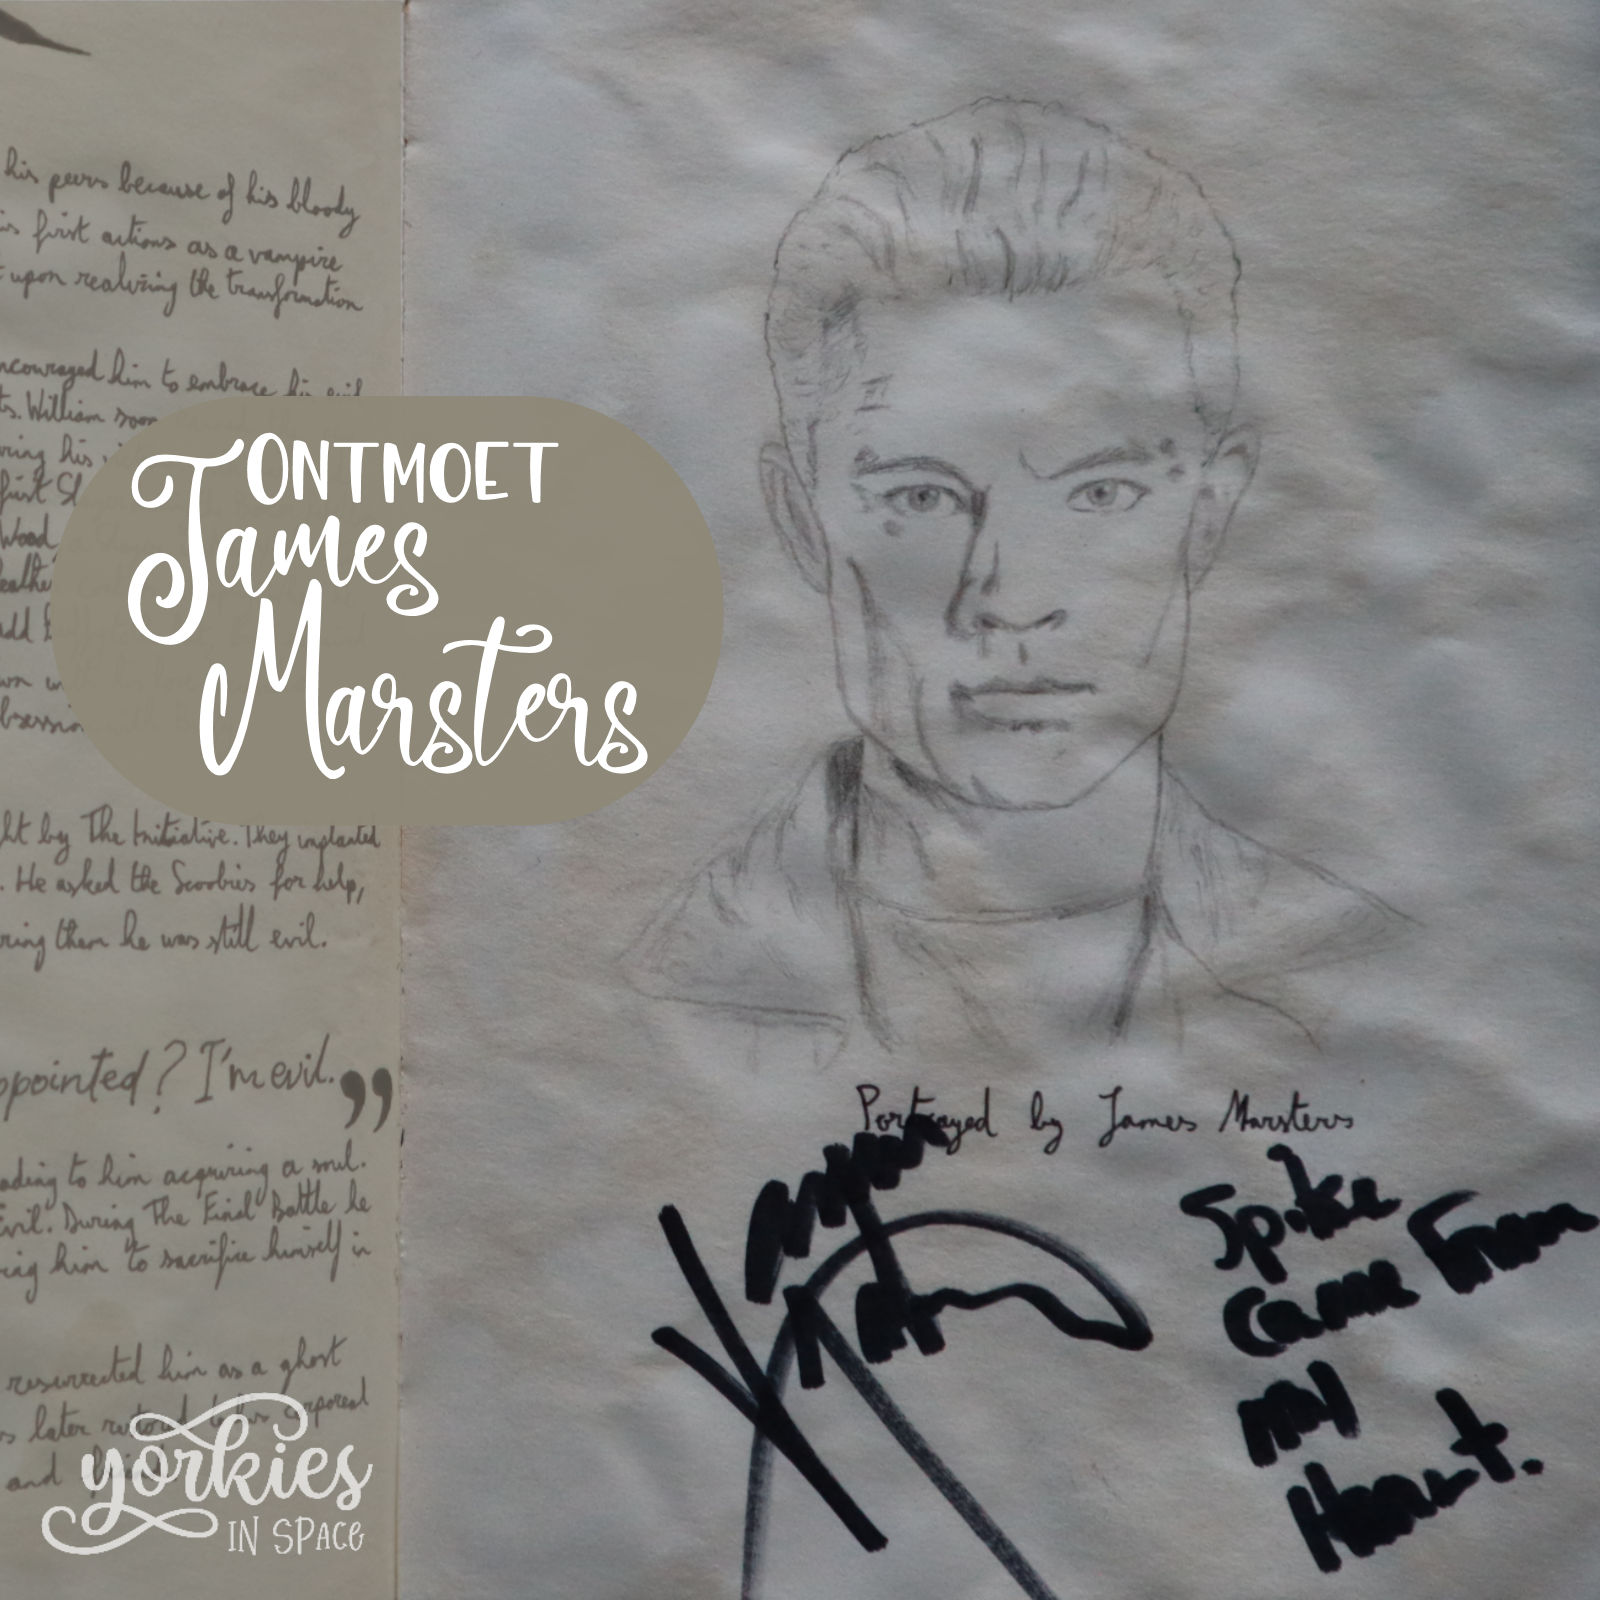 his peers because of his bloody
first actions as a vampire
upon realizing the transformation
encouraged him to embrace his evil
William soon
his
first
Wood
ht by The Initiative. They implanted
. He asked the Scoobies for help,
ring them he was still evil.
ppointed? I'm evil.”
ading to him acquiring a soul.
Evil. During The Final Battle he
ing him to sacrifice himself in
resurrected him as a ghost
later restored to his corporeal
and
ONTMOET
James
Marsters
Portrayed by James Marsters
Spike
Came From
my
Heart.
yorkies
IN SPACE